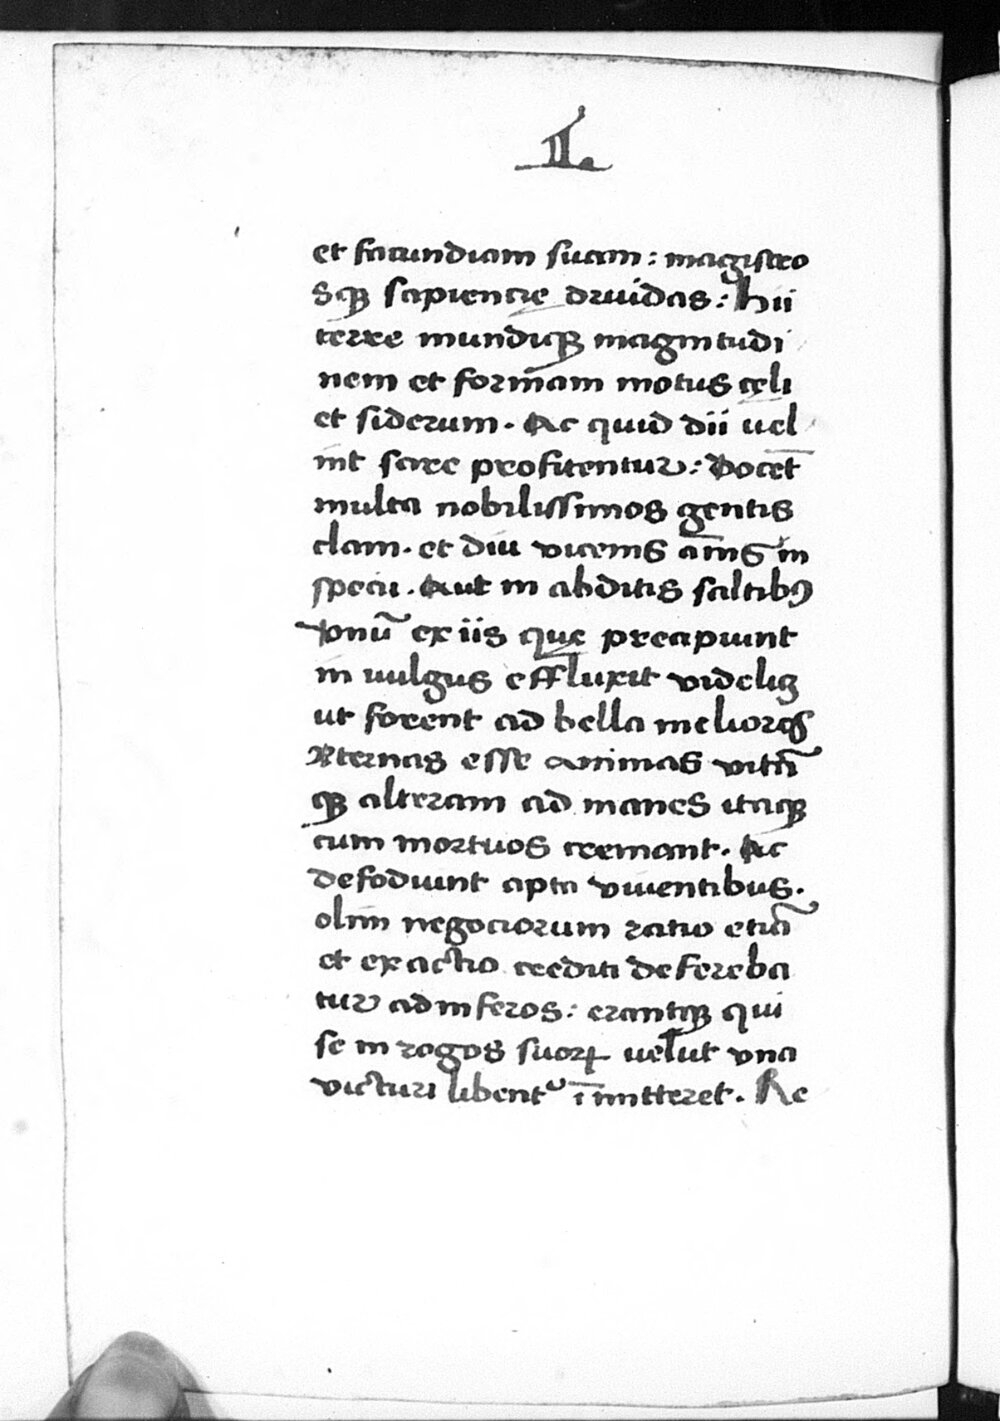 L
et facundiam suam : magistro
sqꝫ sapiencię druidas : hii
terre mundiqꝫ magnitudi
nem et formam motus cęli
et siderum . Ac quid dii uel
int scire profitentur : Docet̄
multa nobilissimos gentis
clam . et diu vicenis ānis in
specu . Aut in abditis saltibꝰ
Vnū ex iis quę precipiunt
in uulgus effluxit videlicꝫ
ut forent ad bella meliores
Aternas esse animas vitā
qꝫ alteram ad manes itaqꝫ
cum mortuos cremant . Ac
defodiunt apta viuentibus .
olim negociorum ratio etiā
et exactio crediti defereba
tur ad inferos : erantqꝫ qui
se in rogos suoꝝ uelut vna
victuri libentᵘ īmitteret . Re